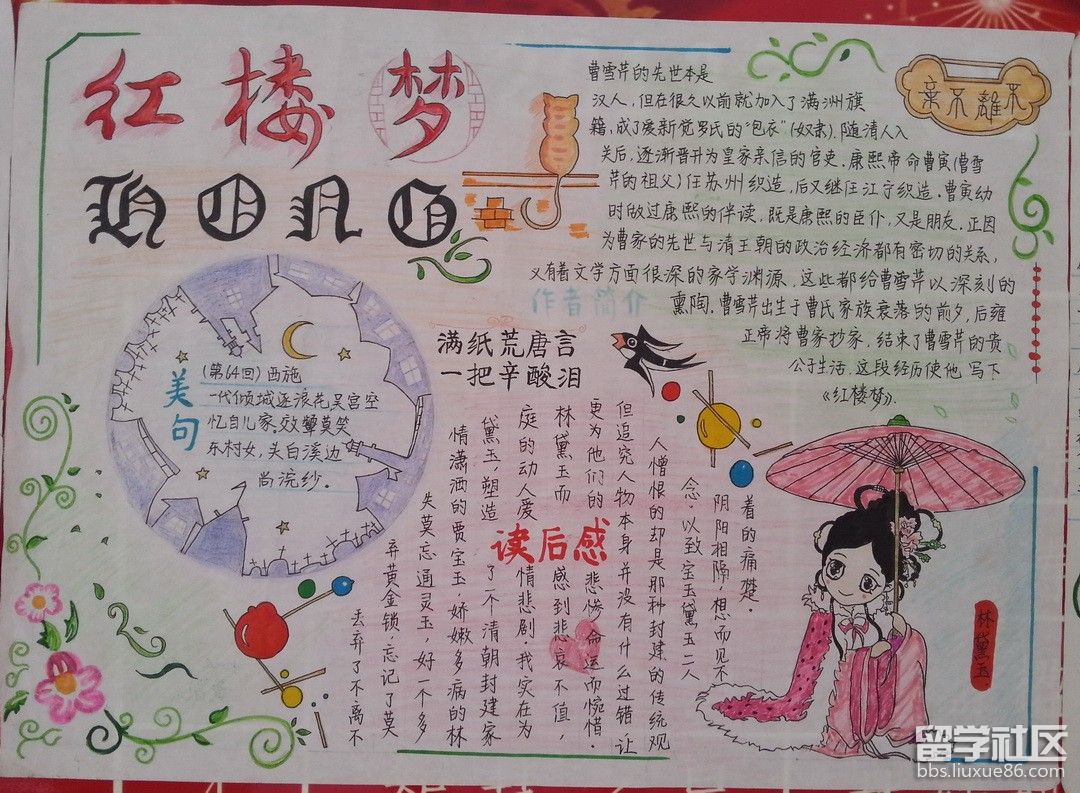 红楼梦
HONG
不離不棄
曹雪芹的先世本是
汉人，但在很久以前就加入了满洲旗
籍，成了爱新觉罗氏的"包衣"(奴隶).随清人入
关后，逐渐晋升为皇家亲信的官吏.康熙帝命曹寅(曹雪
芹的祖父)任苏州织造，后又继任江宁织造.曹寅幼
时做过康熙的伴读，既是康熙的臣仆，又是朋友.正因
为曹家的先世与清王朝的政治经济都有密切的关系，
又有着文学方面很深的家学渊源，这些都给曹雪芹以深刻的
熏陶.曹雪芹出生于曹氏家族衰落的前夕，后雍
正帝将曹家抄家，结束了曹雪芹的贵
公子生活.这段经历使他写下
《红楼梦》.
作者简介
满纸荒唐言
一把辛酸泪
美句
(第64回)西施
一代倾城逐浪花吴宫空
忆自儿家.效颦莫笑
东村女，头白溪边
尚浣纱.
读后感
丢弃了不离不
弃黄金锁，忘记了莫
失莫忘通灵玉，好一个多
情潇洒的贾宝玉，娇嫩多病的林
黛玉，塑造了一个清朝封建家
庭的动人爱情悲剧.我实在为
林黛玉而感到悲哀不值，
更为他们的悲惨命运而惋惜.
但追究人物本身并没有什么过错让
人憎恨的却是那种封建的传统观
念.以致宝玉黛玉二人
阴阳相隔，想而见不
着的痛楚.
林黛玉
留学社区
bbs.liuxue86.com